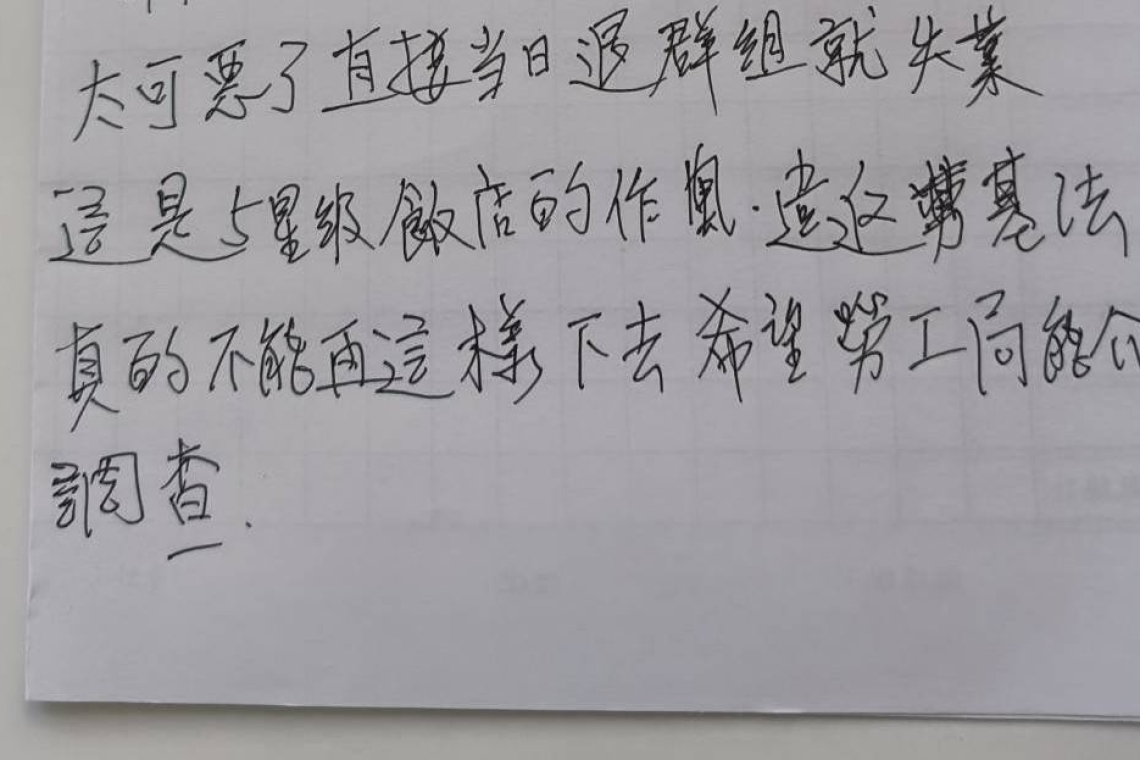 太可惡了直接当日退群組就失業
這是5星級飯店的作風.違反勞基法
真的不能再這樣下去希望勞工局能介
調查.